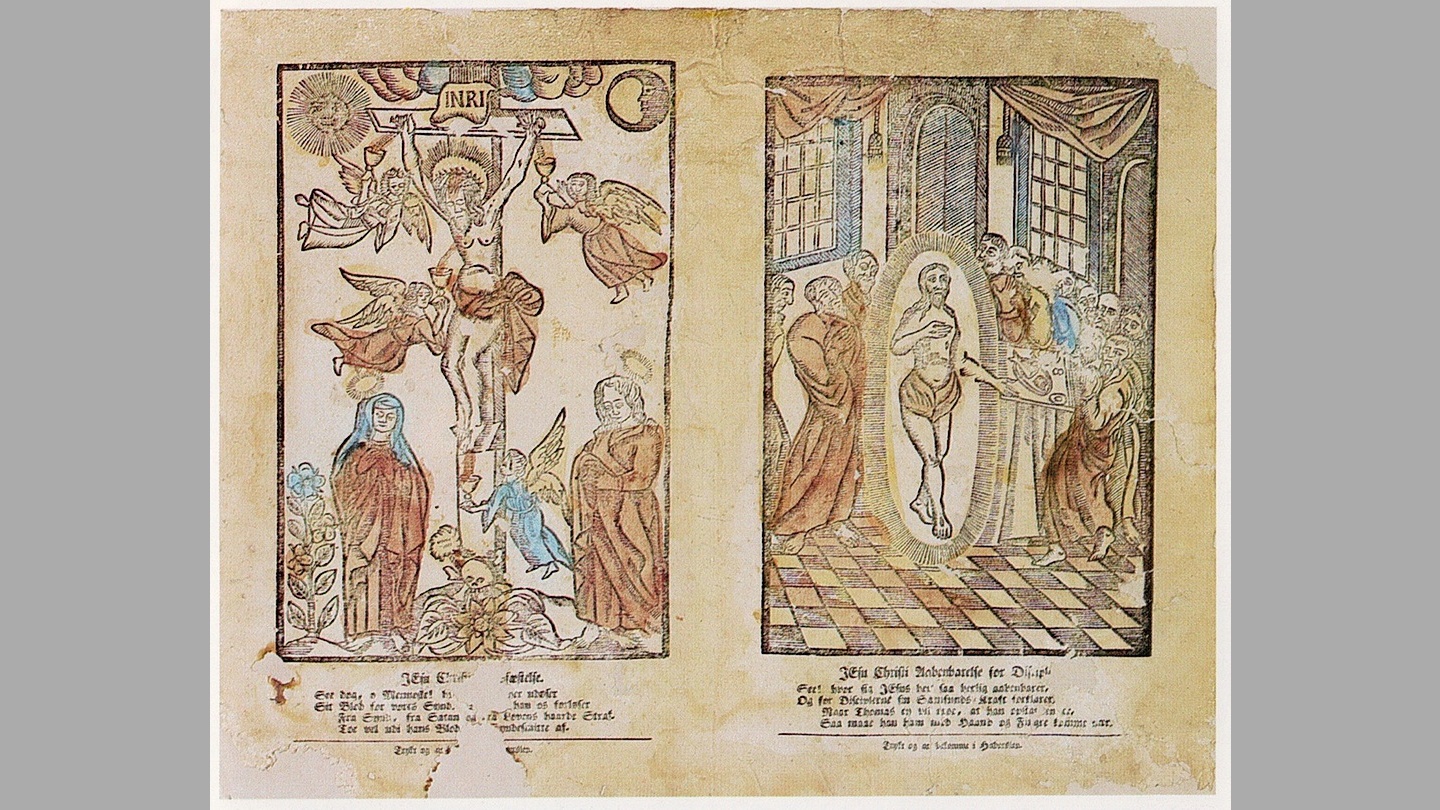 INRI
JEsu fæstelse.
See dog, o Menneske! udøser
Sit Blod for vores Synd. han os forløser
Fra Synd, fra Satan og Lovens haarde Straf.
Toe vel udi hans Blod Syndesmitte af.
Trykt og
JEsu Christi Aabenbarelse for
See! hvor sig JEsus her saa herlig aabenbarer,
Og for Disciplerne sin Samfunds-Kraft forklarer,
Naar Thomas ey vil troe, at han
Saa maae han ham med Haand og Fingre komme nær.
Trykt og at bekomme i Haderslev.